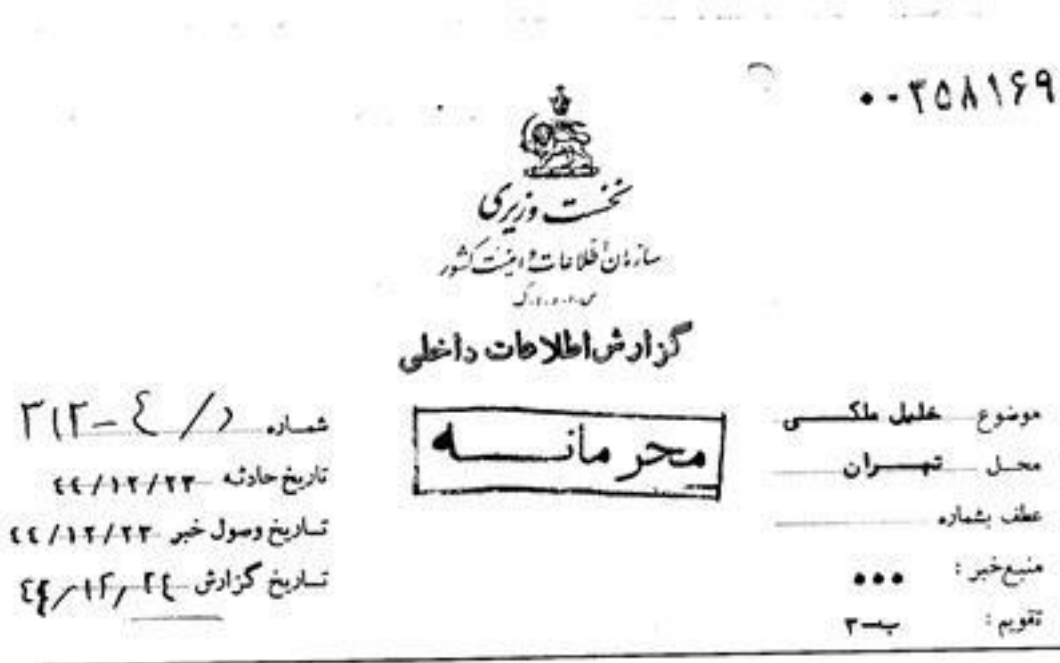 ۰۰۳۵۸۱۶۹
نخست وزیری
سازمان اطلاعات و امنیت کشور
س.ا.و.ا.ک
گزارش اطلاعات داخلی
محرمانه
موضوع خلیل ملکی
محل تهران
عطف بشماره
منبع خبر : •••
تقویم : ب-۳
شماره ۳۱۲-٤/د
تاریخ حادثه ٤٤/۱۲/۲۳
تاریخ وصول خبر ٤٤/۱۲/۲۳
تاریخ گزارش ٤٤/۱۲/۲٤